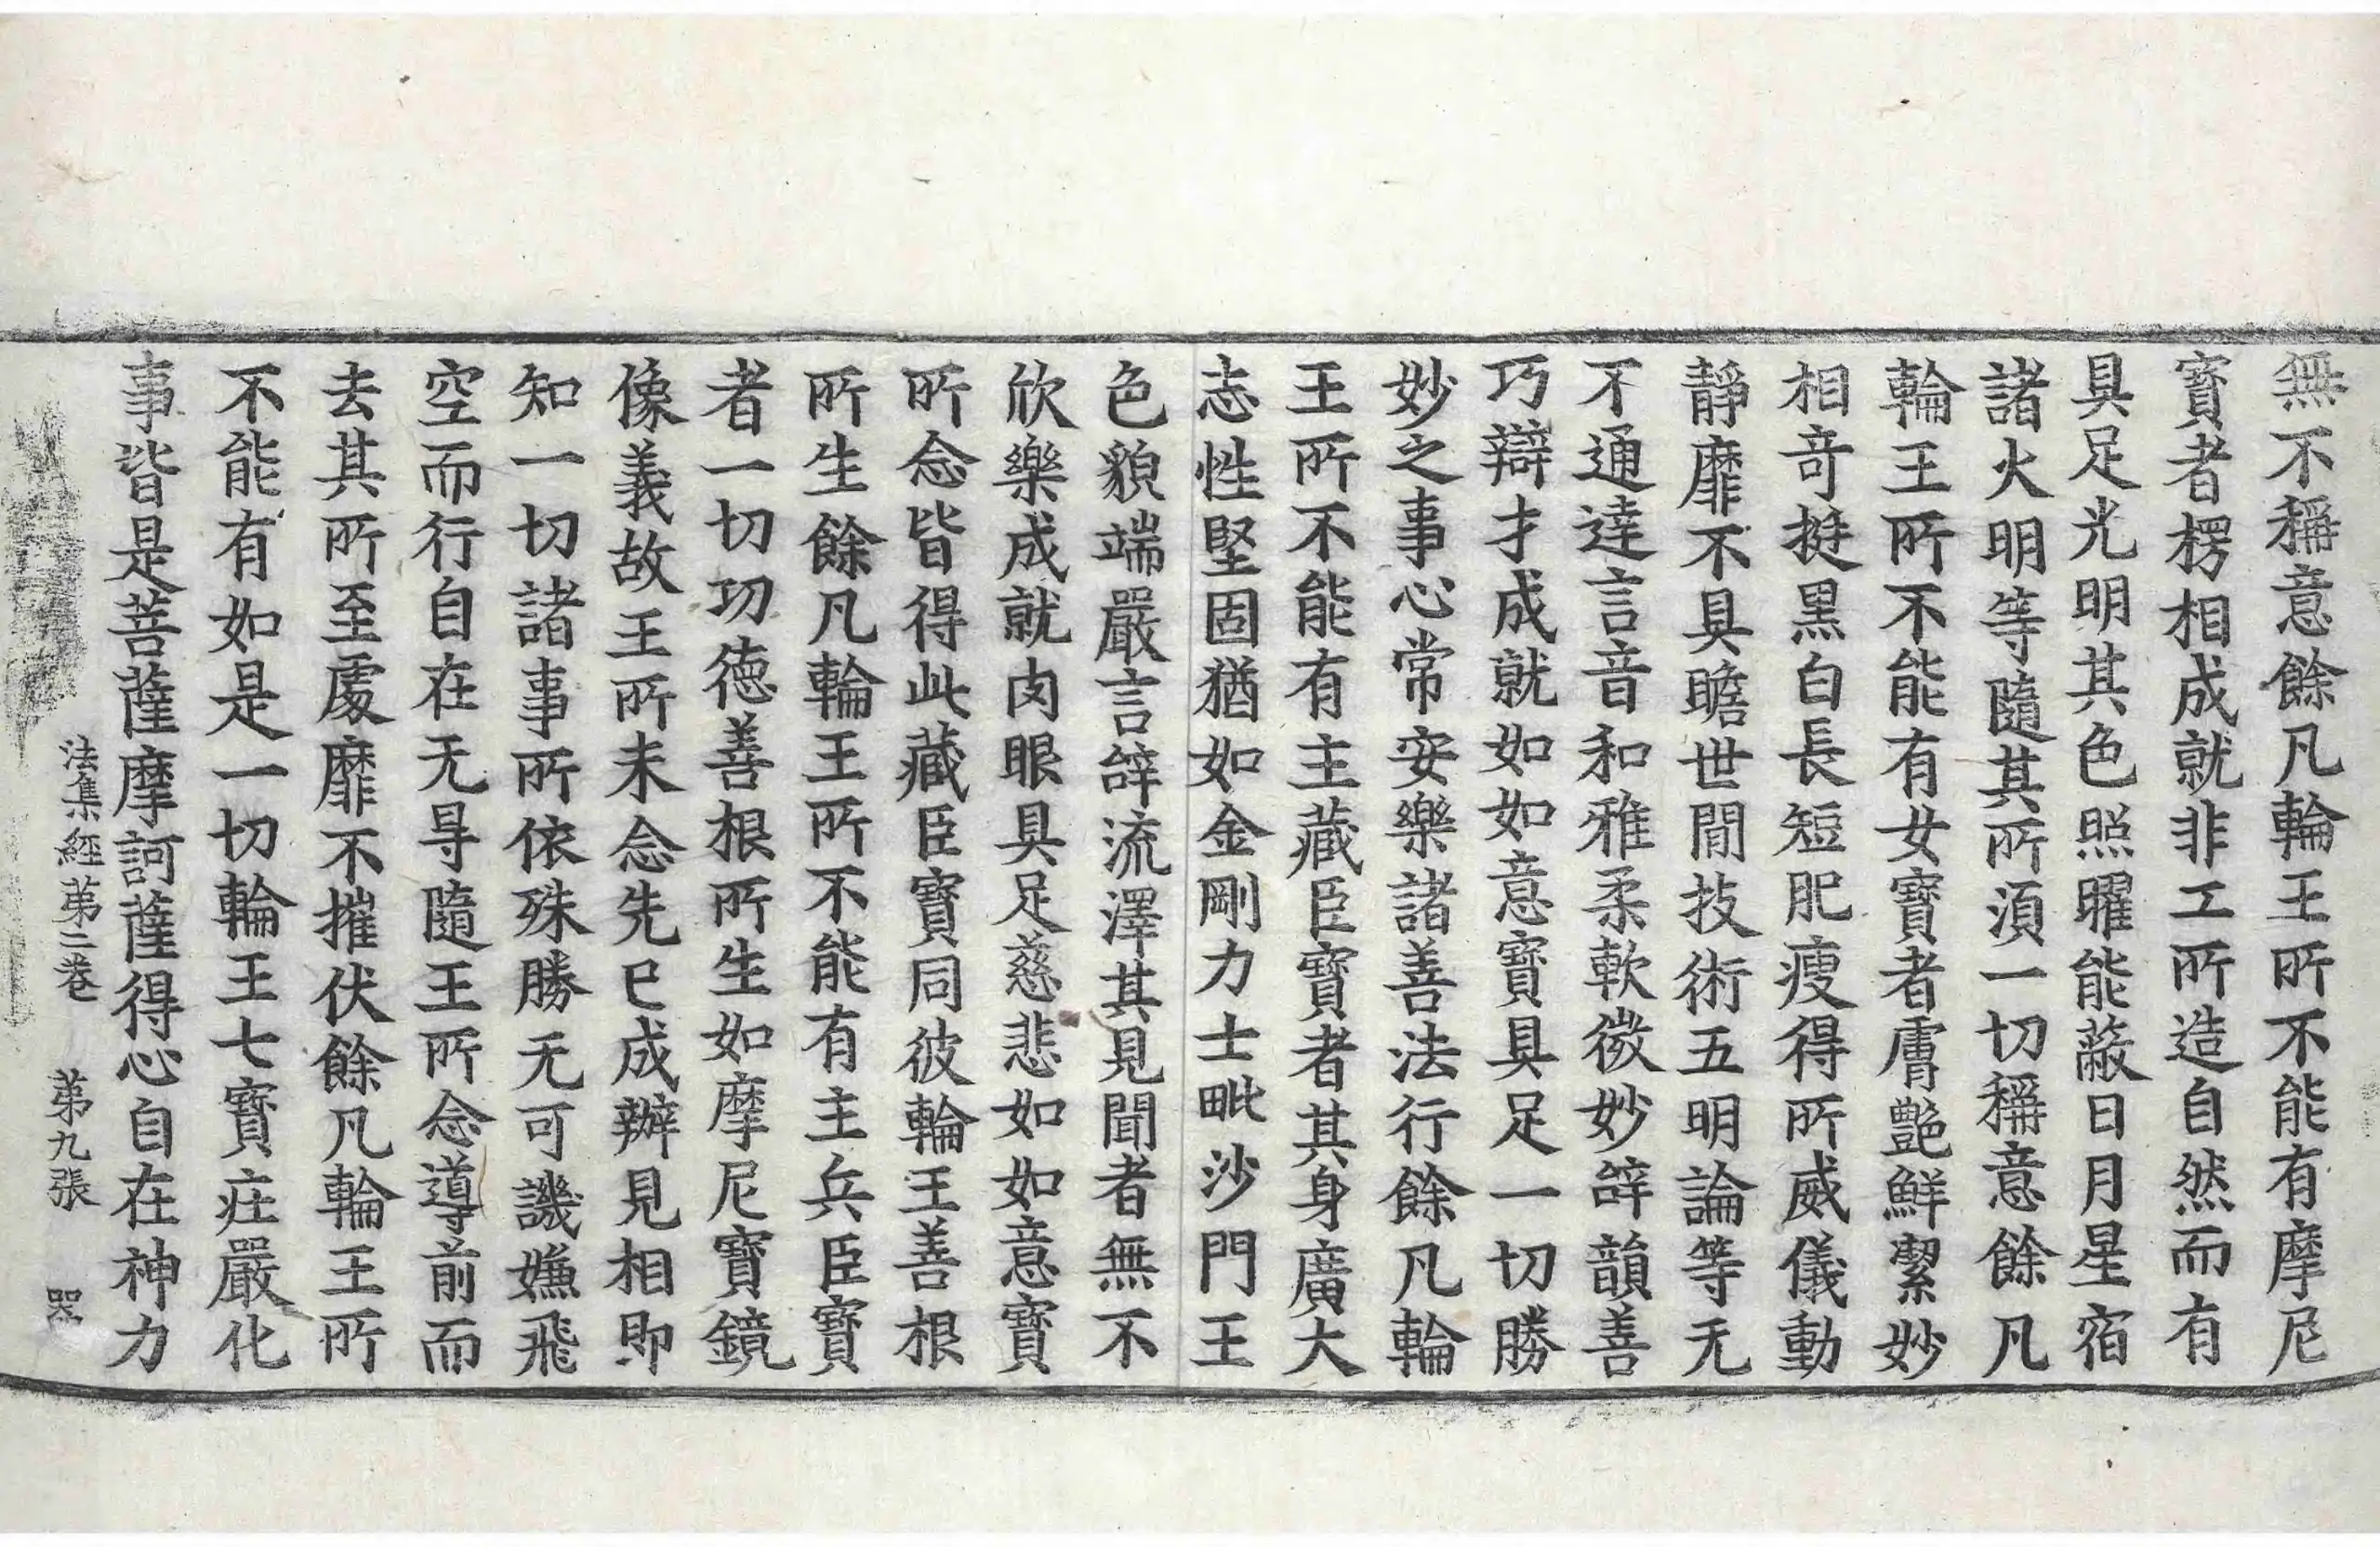 無不稱意餘凡輪王所不能有摩尼
寶者楞相成就非工所造自然而有
具足光明其色照曜能蔽日月星宿
諸火明等隨其所湏一切稱意餘凡
輪王所不能有女寶者膚艶鮮潔妙
相奇挺黑白長短肥瘦得所威儀動
靜靡不具瞻世閒技術五明論等无
不通達言音和雅柔軟微妙辝韻善
巧辯才成就如如意寶具足一切勝
妙之事心常安樂諸善法行餘凡輪
王所不能有主藏臣寶者其身廣大
志性堅固猶如金剛力士毗沙門王
色貌端嚴言辝流澤其見聞者無不
欣樂成就肉眼具足慈悲如如意寶
所念皆得此藏臣寶同彼輪王善根
所生餘凡輪王所不能有主兵臣寶
者一切功德善根所生如摩尼寶鏡
像義故王所未念先已成辦見相即
知一切諸事所依殊勝无可譏嫌飛
空而行自在无㝵隨王所念導前而
去其所至處靡不摧伏餘凡輪王所
不能有如是一切輪王七寶庄嚴化
事皆是菩薩摩訶薩得心自在神力
法集經第二卷 第九張 器